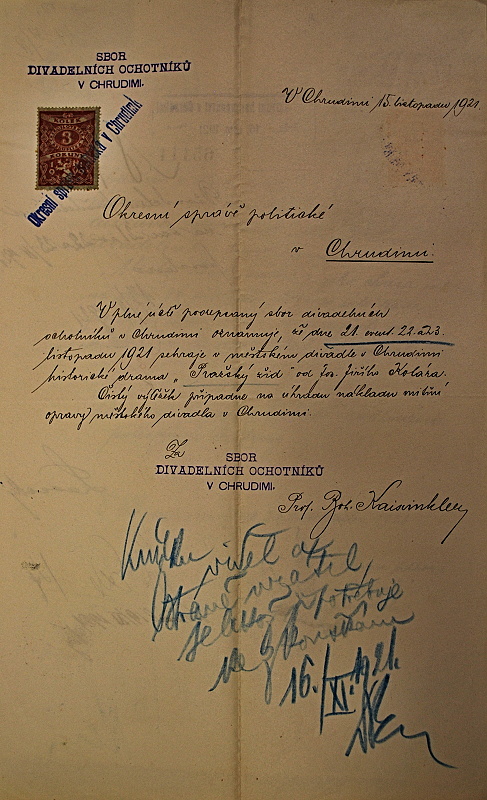 SBOR
DIVADELNÍCH OCHOTNÍKŮ
V CHRUDIMI.
V Chrudimi 15. listopadu 1921.
KOLEK
3
KORUNY
Okresní správa politická v Chrudimi
Okresní správě politické
v Chrudimi.
V plné úctě podepsaný sbor divadelních
ochotníků v Chrudimi oznamuje, že dne 21. event. 22. a 23.
listopadu 1921 sehraje v městském divadle v Chrudimi
historické drama „Pražský žid" od Jos. Jiřího Kolára.
Čistý výtěžek připadne na úhradu nákladu vnitřní
opravy městského divadla v Chrudimi.
Za
SBOR
DIVADELNÍCH OCHOTNÍKŮ
V CHRUDIMI.
Prof. Boh.
Knížku viděl a
vrátil,
potřebuje
ke zkouškám
16./XI. 1921.